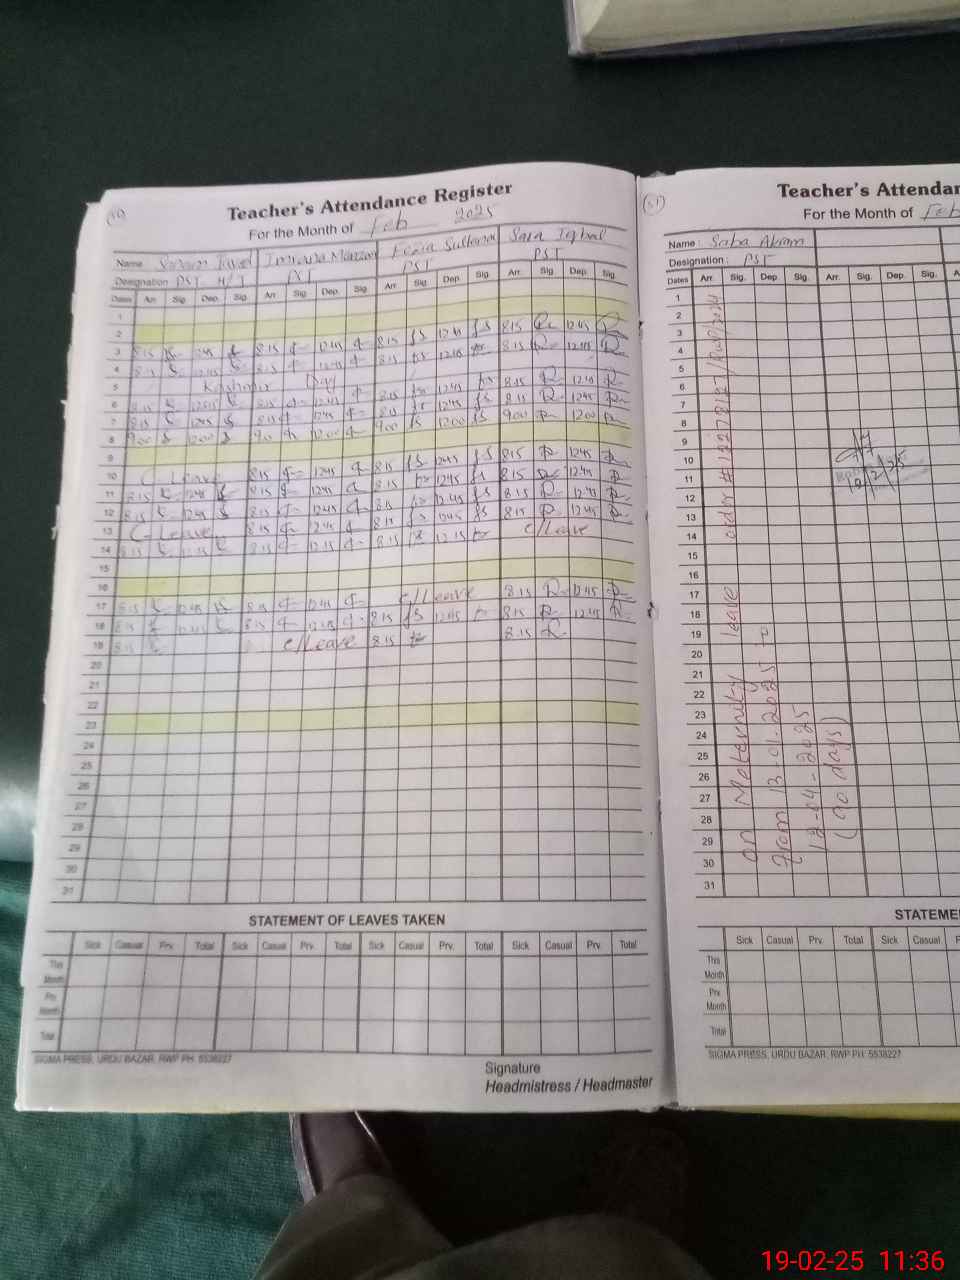 50
Teacher's Attendance Register
For the Month of Feb 2025
Name Imrana Sultana Sara Iqbal
Designation PST H/T PST PST
Dates Arr. Sig. Dep. Sig. Arr. Sig. Dep. Sig. Arr. Sig. Dep. Sig. Arr. Sig. Dep. Sig.
1
2
3 8:15 12:45 8:15 12:45 8:15 12:45 8:15 12:45
4 8:15 12:45 8:15 12:45 8:15 12:45 8:15 12:45
5 Kashmir Day
6 8:15 12:45 8:15 12:45 8:15 12:45 8:15 12:45
7 8:15 12:45 8:15 12:45 8:15 12:45 8:15 12:45
8 9:00 12:00 9:0 12:00 9:00 12:00 9:00 12:00
9
10 C-Leave 8:15 12:45 8:15 12:45 8:15 12:45
11 8:15 12:45 8:15 12:45 8:15 12:45 8:15 12:45
12 8:15 12:45 8:15 12:45 8:15 12:45 8:15 12:45
13 C-Leave 8:15 12:45 8:15 12:45 8:15 12:45
14 8:15 12:15 8:15 12:15 8:15 12:15 c/Leave
15
16
17 8:15 12:45 8:15 12:45 c/Leave 8:15 12:45
18 8:15 12:45 8:15 12:45 8:15 12:45 8:15 12:45
19 8:15 c/Leave 8:15 8:15
20
21
22
23
24
25
26
27
28
29
30
31
STATEMENT OF LEAVES TAKEN
Sick Casual Prv. Total Sick Casual Prv. Total Sick Casual Prv. Total Sick Casual Prv. Total
This Month
Prv. Month
Total
SIGMA PRESS, URDU BAZAR, RWP PH: 5538227
Signature
Headmistress / Headmaster
51
Teacher's Attendan
For the Month of Feb
Name : Saba Akram
Designation : PST
Dates Arr. Sig. Dep. Sig. Arr. Sig. Dep. Sig. A
1
2
3
4
5
6
7
8
9
10
11
12
13
14
15
16
17
18
19
20
21
22
23
24
25
26
27
28
29
30
31
on Maternity leave
from 13-01-2025 to
12-04-2025
(90 days)
STATEME
Sick Casual Prv. Total Sick Casual P
This Month
Prv. Month
Total
SIGMA PRESS, URDU BAZAR, RWP PH: 5538227
19-02-25 11:36